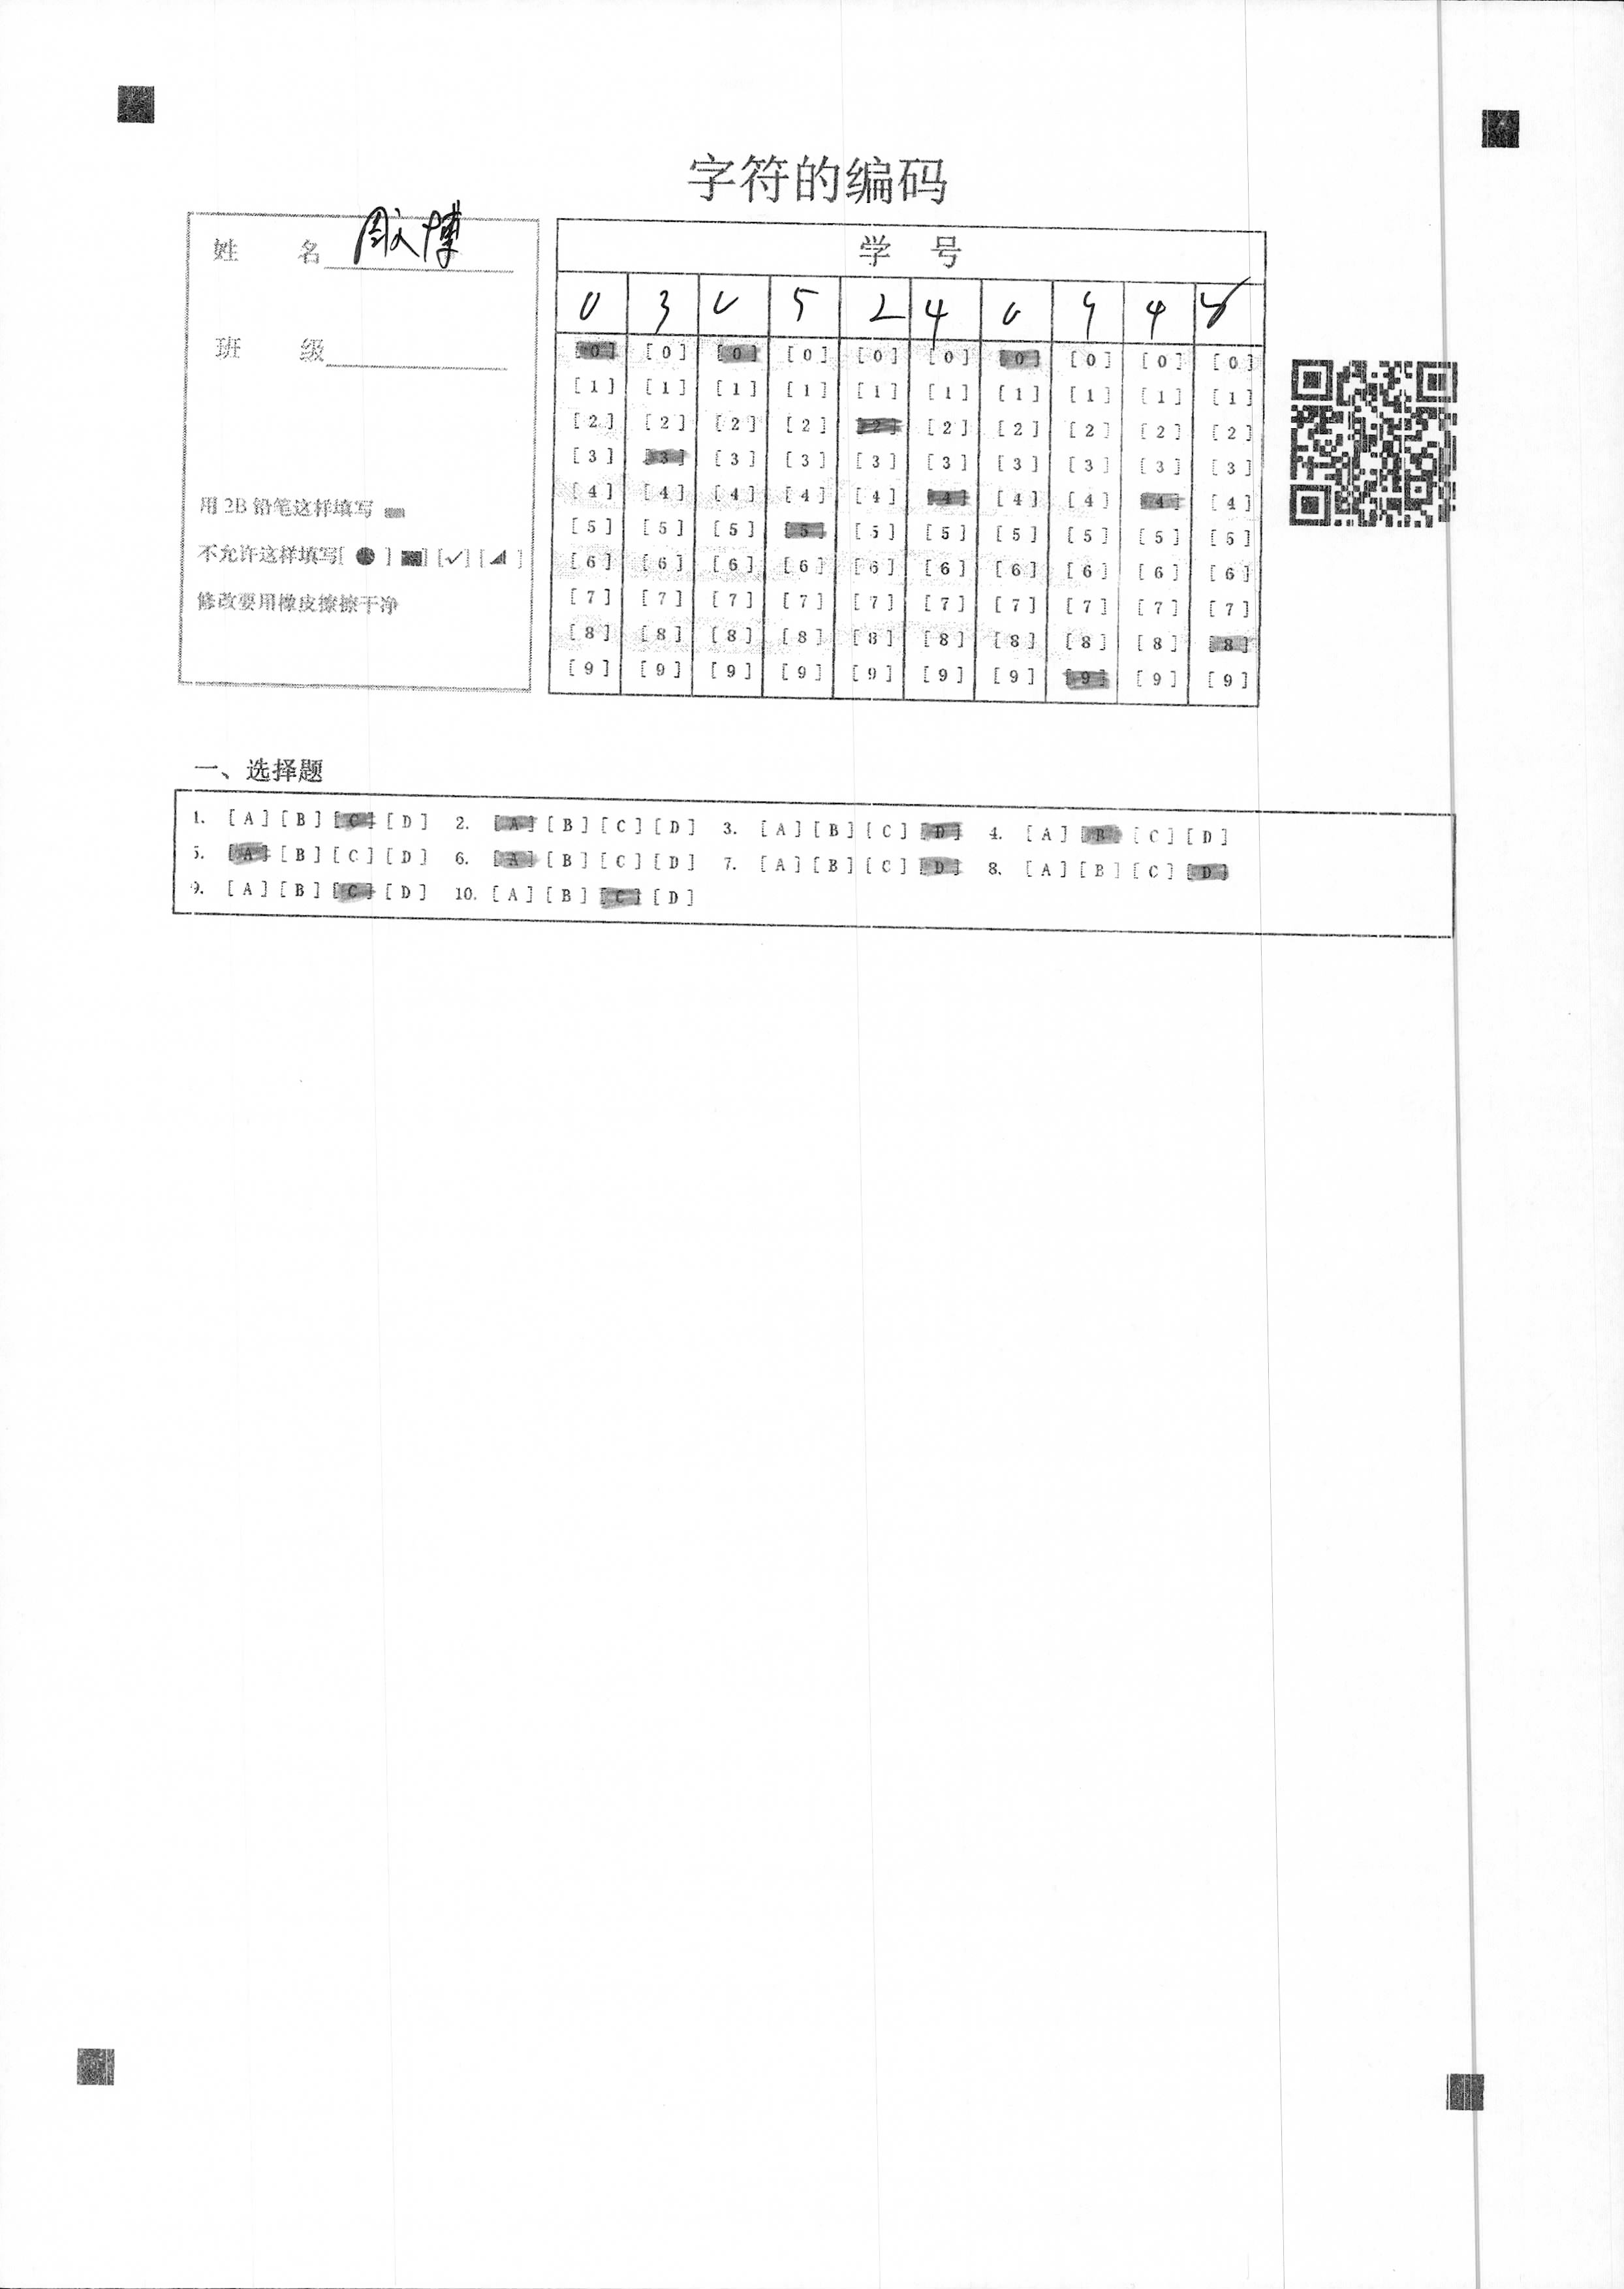 字符的编码
姓 名 周文博
班 级
用 2B 铅笔这样填写
不允许这样填写[ ● ] [■] [✓] [◢ ]
修改要用橡皮擦擦干净
学 号
0 3 0 5 2 4 0 9 4 8
[0] [0] [0] [0] [0] [0] [0] [0] [0] [0]
[1] [1] [1] [1] [1] [1] [1] [1] [1] [1]
[2] [2] [2] [2] [2] [2] [2] [2] [2] [2]
[3] [3] [3] [3] [3] [3] [3] [3] [3] [3]
[4] [4] [4] [4] [4] [4] [4] [4] [4] [4]
[5] [5] [5] [5] [5] [5] [5] [5] [5] [5]
[6] [6] [6] [6] [6] [6] [6] [6] [6] [6]
[7] [7] [7] [7] [7] [7] [7] [7] [7] [7]
[8] [8] [8] [8] [8] [8] [8] [8] [8] [8]
[9] [9] [9] [9] [9] [9] [9] [9] [9] [9]
一、选择题
1. [A] [B] [C] [D] 2. [A] [B] [C] [D] 3. [A] [B] [C] [D] 4. [A] [B] [C] [D]
5. [A] [B] [C] [D] 6. [A] [B] [C] [D] 7. [A] [B] [C] [D] 8. [A] [B] [C] [D]
9. [A] [B] [C] [D] 10. [A] [B] [C] [D]